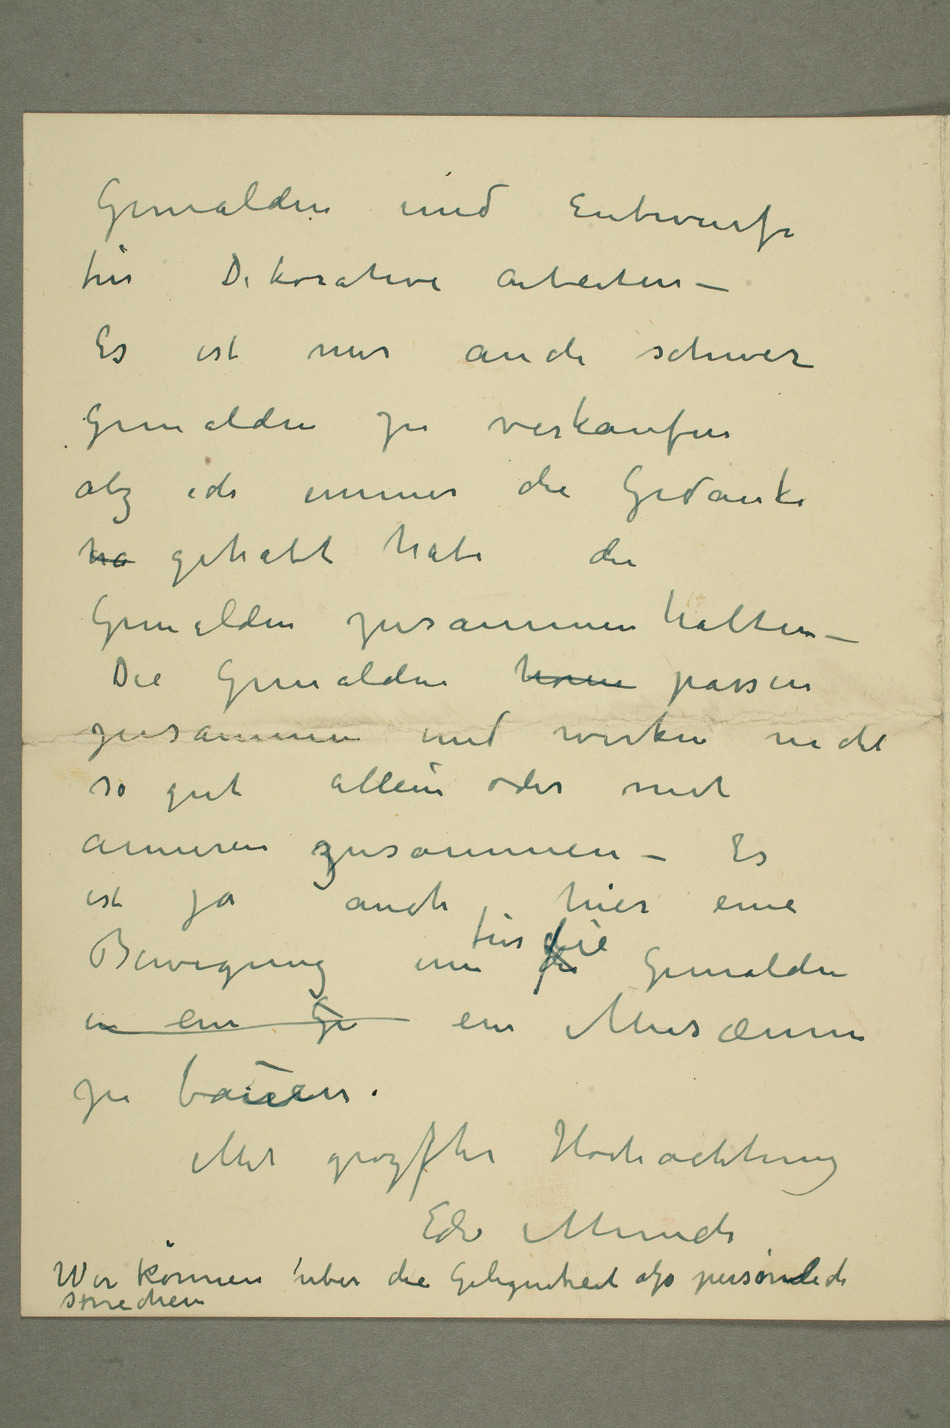 Gemälden und Entwürfe
für Dekorative Arbeiten –
Es ist mir auch schwer
Gemälden zu verkaufen
alz ich immer die Gedanke
ha gehabt habe die
Gemälden zusammen halten –
Die Gemälden konne passen
zusammen und wirken nicht
so gut allein oder mit
anneren zusammen – Es
ist ja auch hier eine
Bewegung um für die Gemälden
in ein Ge ein Musæum
zu bauen.
Mit grozfter Hochachtung
Edv Munch
Wir können über die Gelegenheit alzo persönlich
sprechen